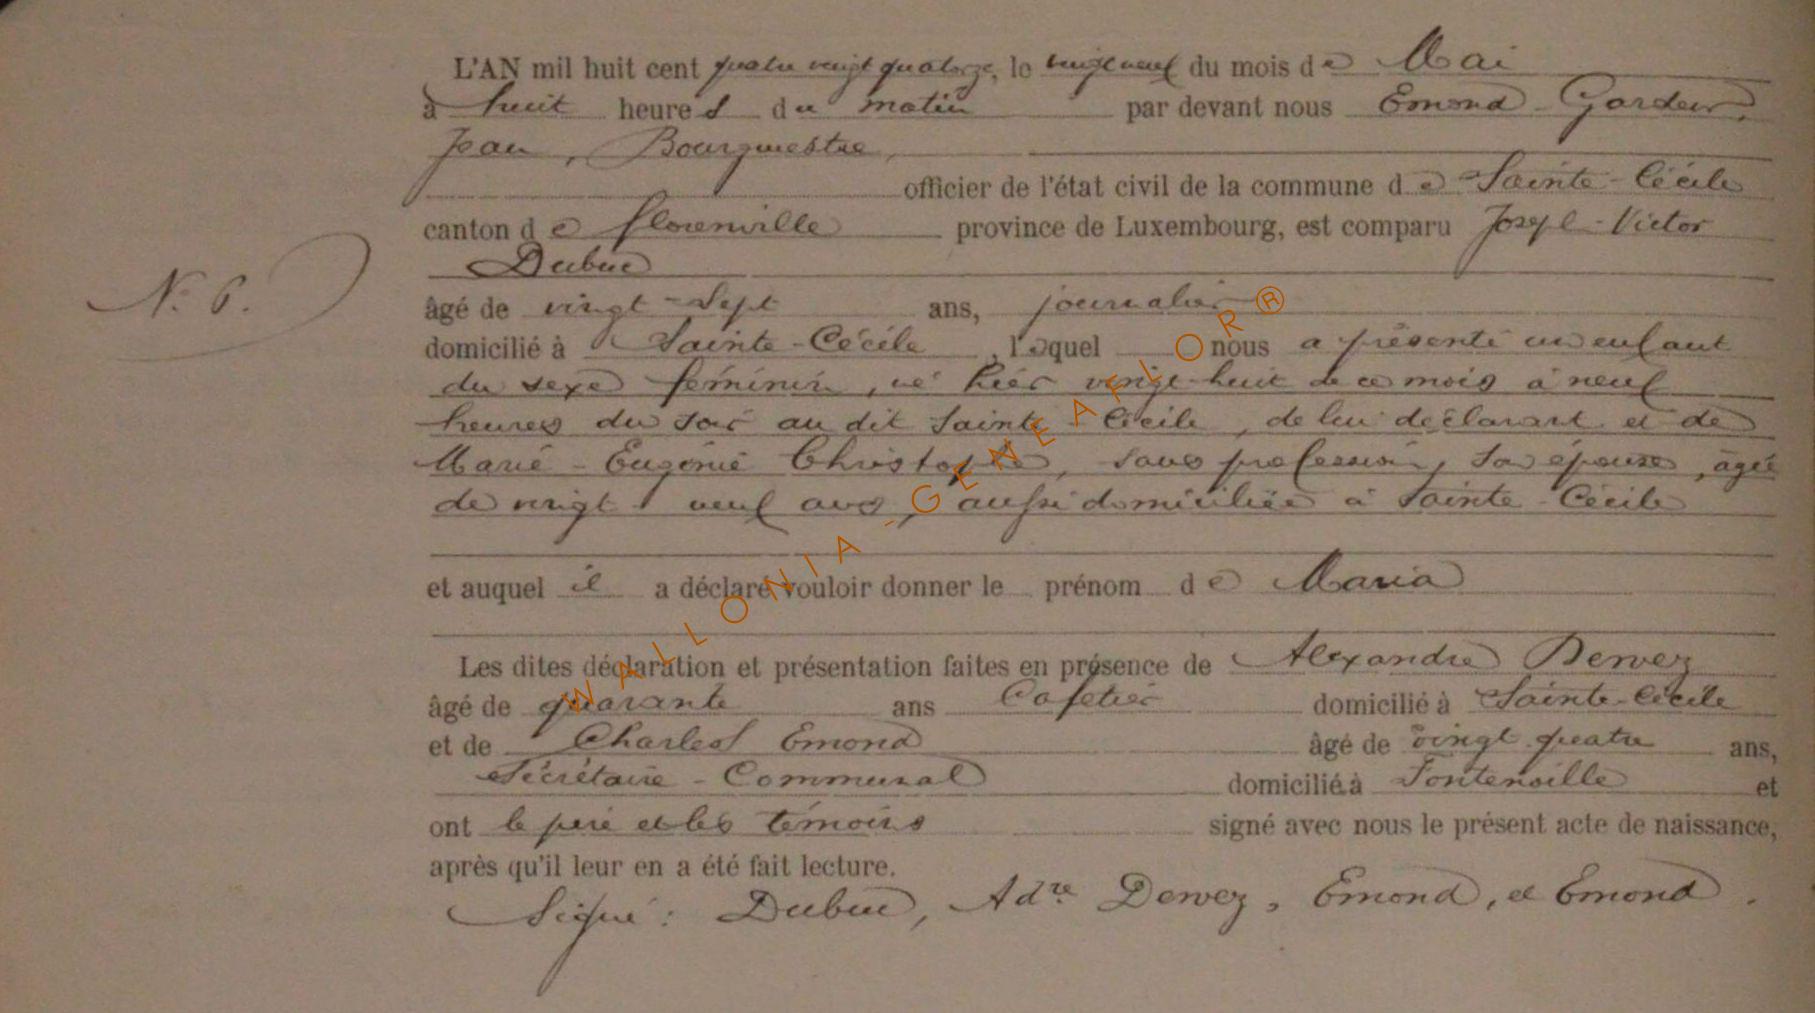 L'AN mil huit cent quatre vingt quatorze, le vingt neuf du mois de Mai
à huit heures du matin par devant nous Emond-Gardeur,
Jean, Bourgmestre,
officier de l'état civil de la commune de Sainte-Cécile
canton de florenville province de Luxembourg, est comparu Joseph-Victor
Dubuc
N° 6.
âgé de vingt-sept ans, journalier
domicilié à Sainte-Cécile, lequel nous a présenté un enfant
du sexe féminin, né hier vingt-huit de ce mois à neuf
heures du soir au dit Sainte Cécile, de lui déclarant et de
Marie-Eugénie Christophe, sans profession, son épouse, âgée
de vingt neuf ans, aussi domiciliée à Sainte-Cécile
et auquel il a déclaré vouloir donner le prénom de Maria
Les dites déclaration et présentation faites en présence de Alexandre Dervez
âgé de quarante ans Cafetier domicilié à Sainte-Cécile
et de Charles Emond âgé de vingt quatre ans,
Secrétaire-Communal domicilié à Fontenoille et
ont le père et les témoins signé avec nous le présent acte de naissance,
après qu'il leur en a été fait lecture.
Signé: Dubuc, Adre Dervez, Emond, et Emond.
WALLONIA-GENEAFLOR®